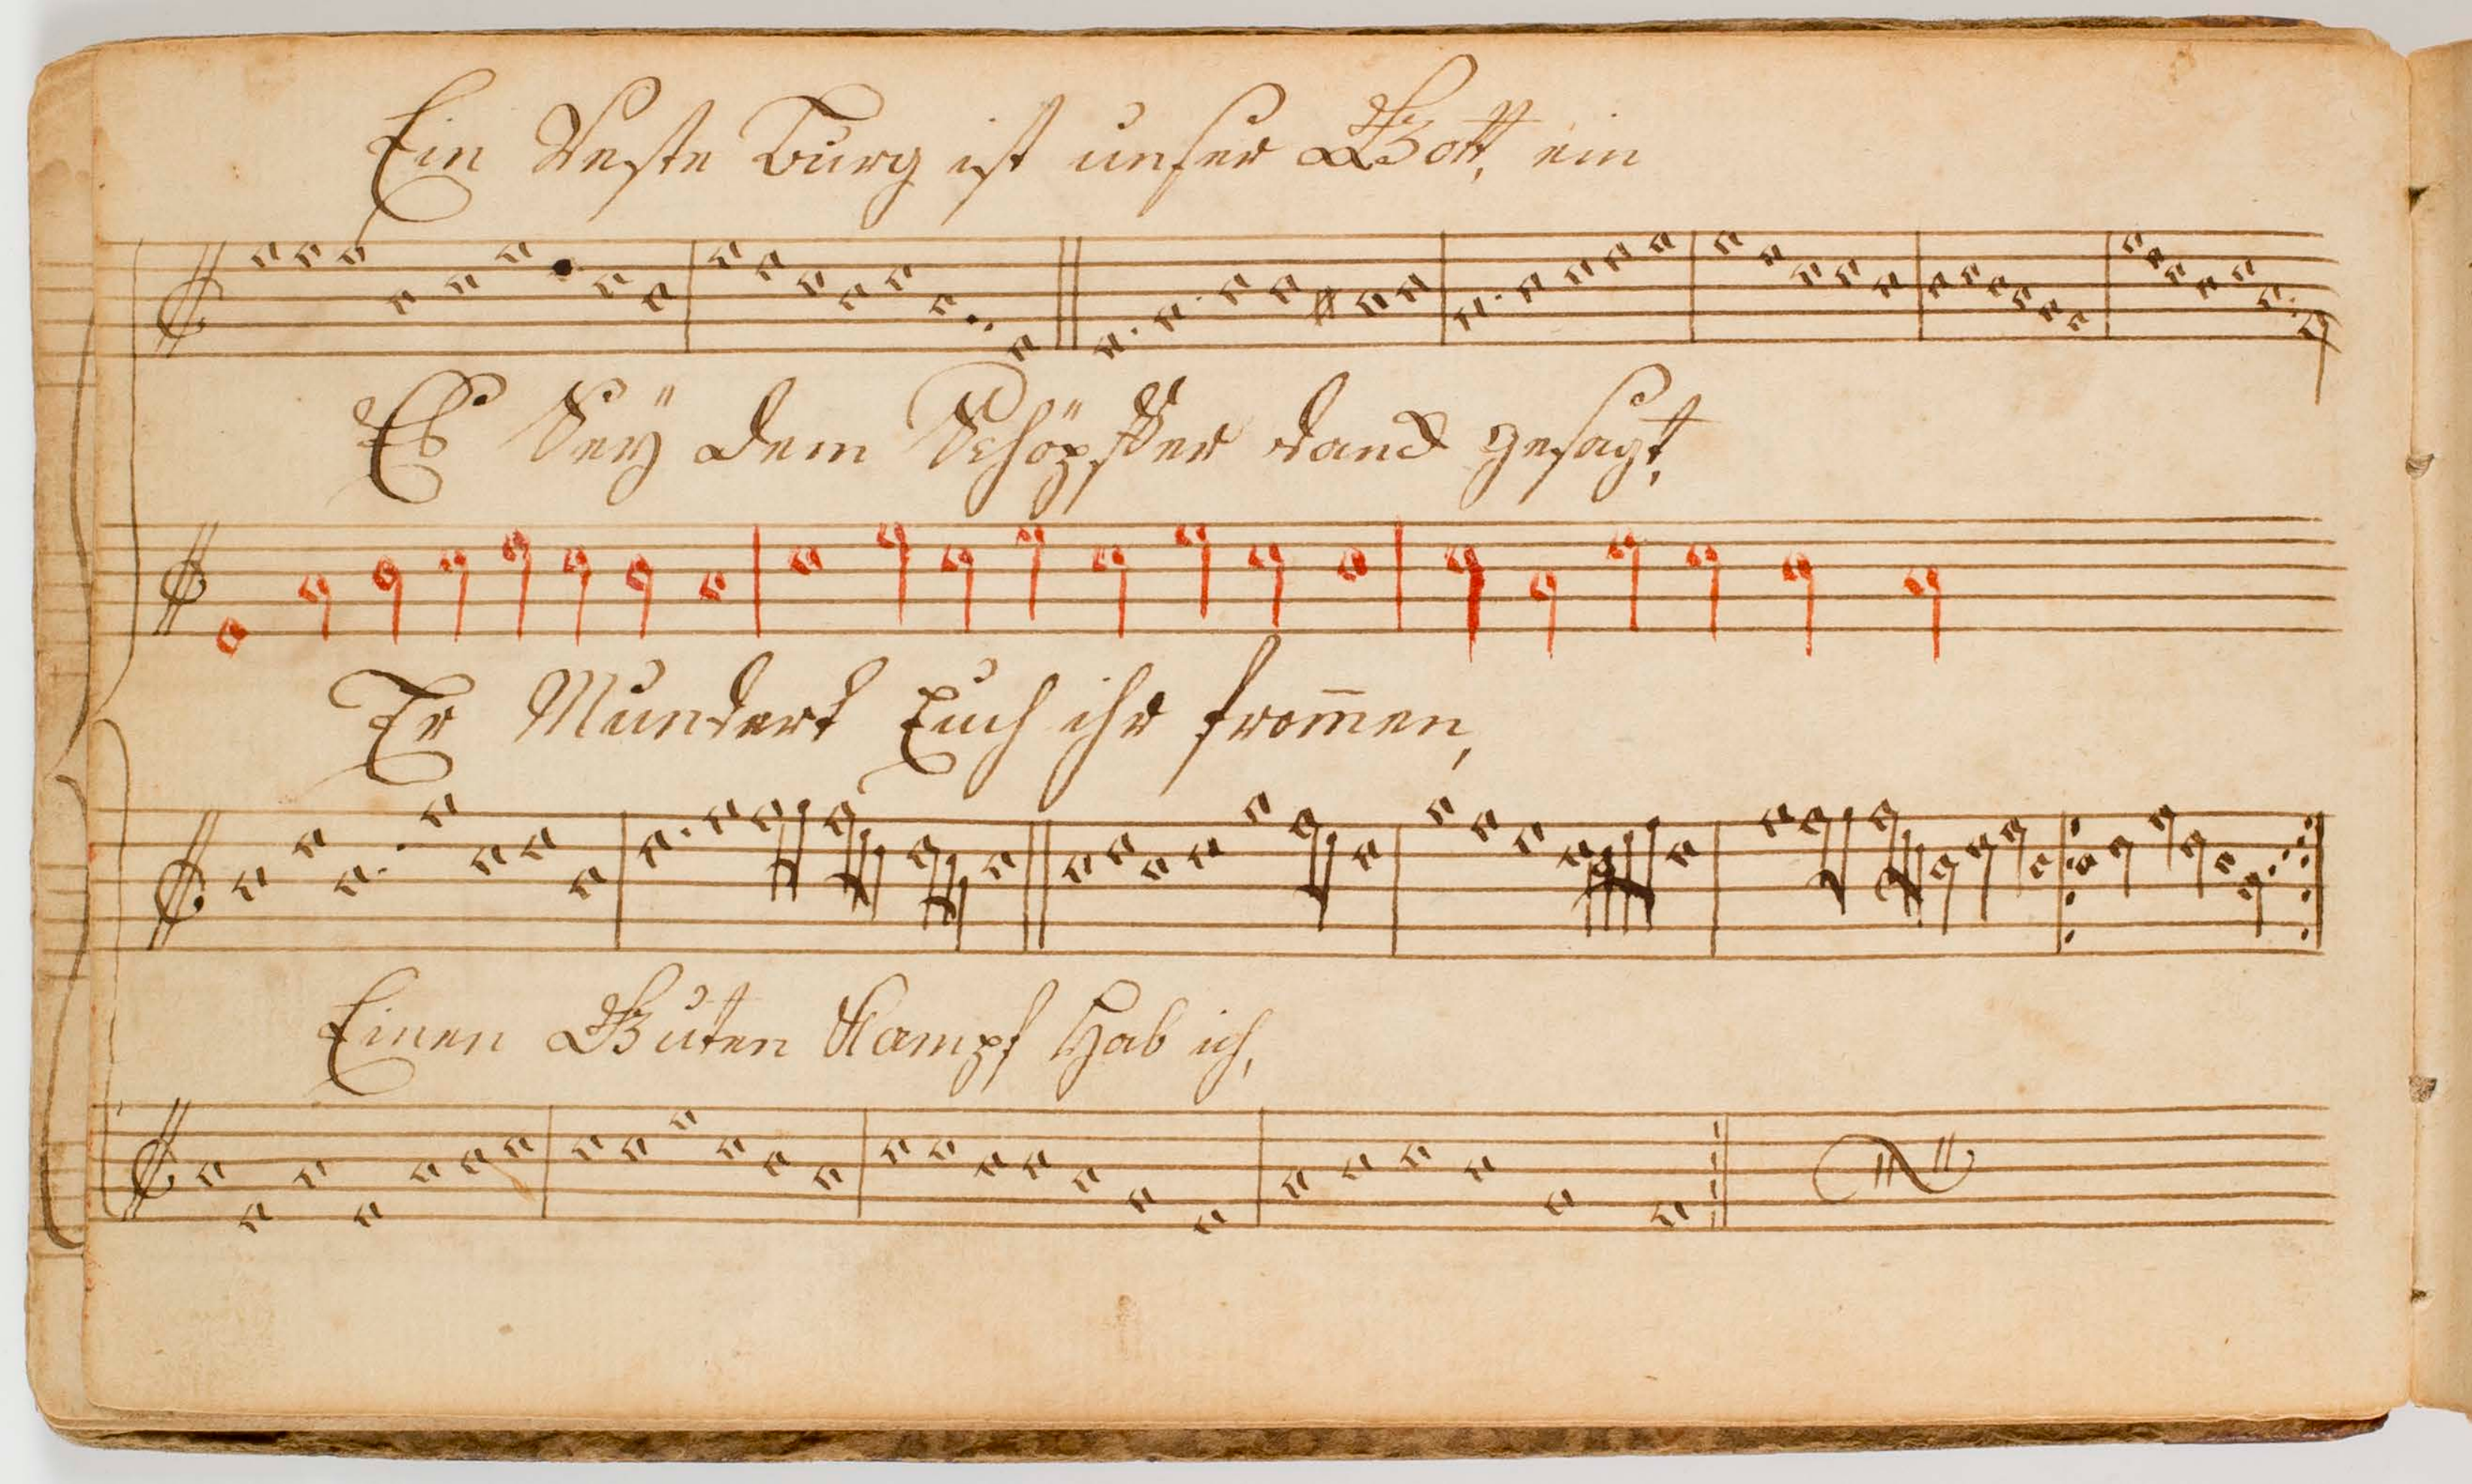 Ein Veste Burg ist unser Gott, ein
Es Seÿ dem Schöpffer danck gesagt,
Er Mundert Euch ihr from̅en,
Einen Guten Kampf Hab ich,